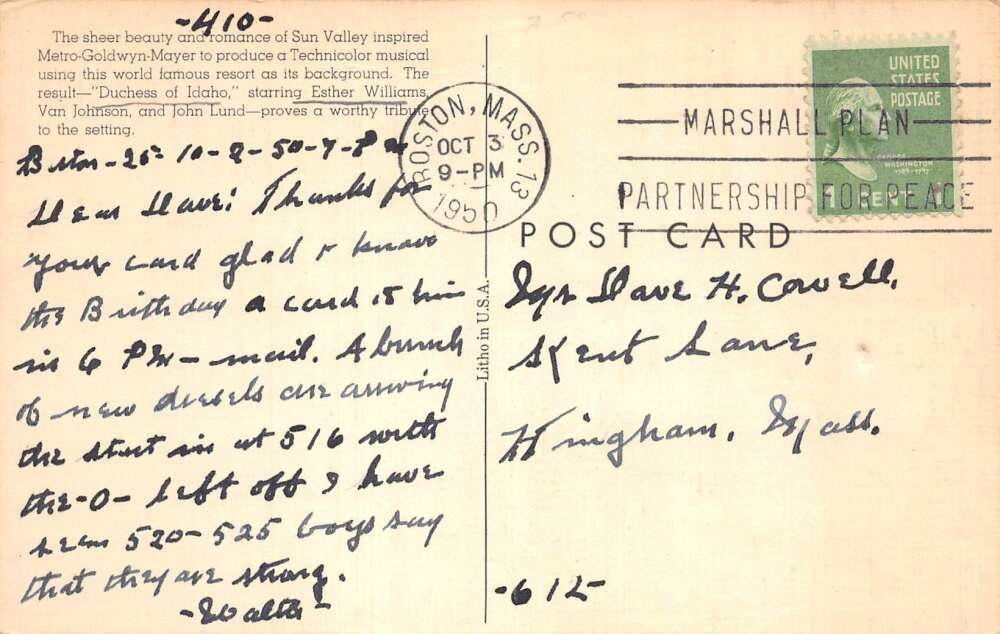 -410-
The sheer beauty and romance of Sun Valley inspired
Metro-Goldwyn-Mayer to produce a Technicolor musical
using this world famous resort as its background. The
result—"Duchess of Idaho," starring Esther Williams,
Van Johnson, and John Lund—proves a worthy tribute
to the setting.
10-2-50-7-P M
Dear Dave: Thanks for
your card glad to know
the Birthday card is him
in 6 PM - mail. A bunch
of new diesels are arriving
the start in at 516 with
the -0- left off I have
seen 520-525 boys say
that they are strong.
-Walter-
Litho in U.S.A.
BOSTON, MASS. 13
OCT 3
9-PM
1950
MARSHALL PLAN
PARTNERSHIP FOR PEACE
UNITED
STATES
POSTAGE
GEORGE
WASHINGTON
1789-1797
1 CENT
POST CARD
Mr Dave H. Cowell.
Kent Lane,
Hingham. Mass.
-612-